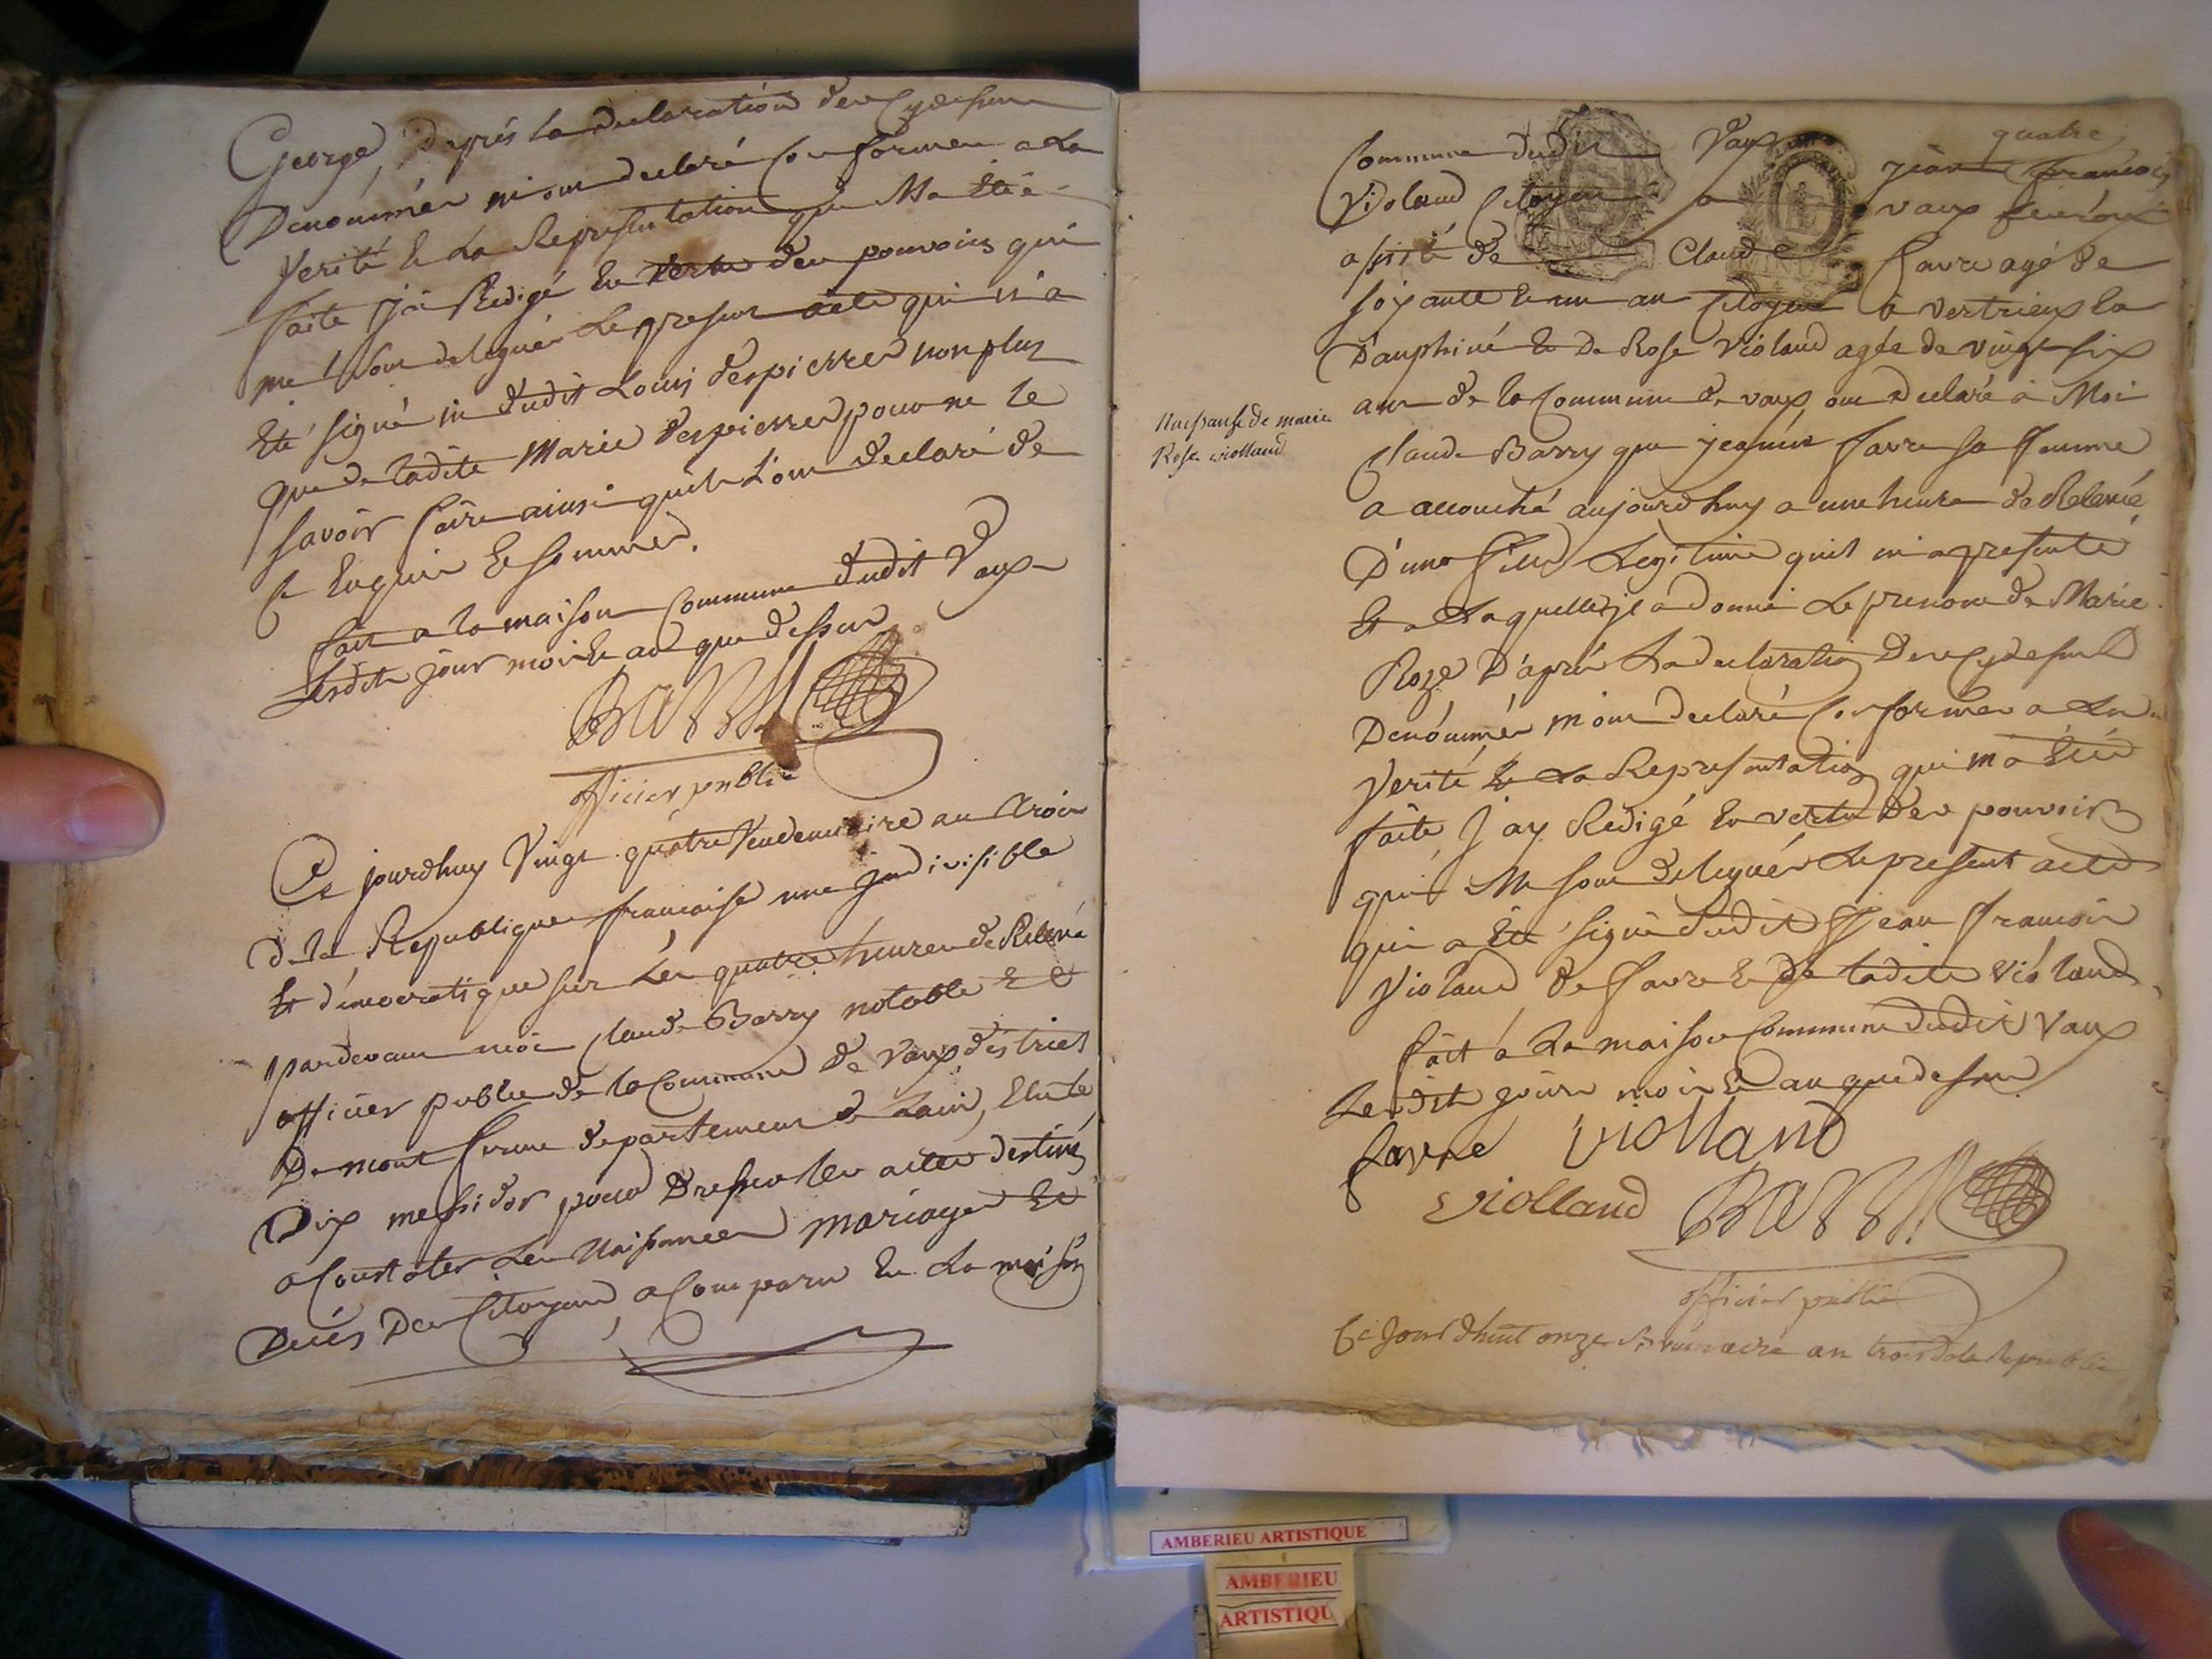 George, daprés la declaration des cydessus
Denoummés m'ont declaré conformes a La
Verité Et La Representation que Ma Eté
faite J'ai Redigé En vertu des pouvoirs qui
me sont delegués Le present acte qui n'a
Eté signé ni dudit Louis despierres non plus
que de ladite Marie despierres pour ne le
savoir faire ainsi quils L'ont declaré de
ce Enquis Et sommés.
fait a la maison Commune dudit Vaux
Lesdits jour mois Et an que dessus
Barry
officier public
Ce jourdhuy Vingt quatre Vendemiaire an trois
De la Republique francaise une Jndivisible
Et démocratique sur Les quatre heures de Relevé
pardevant moi Claude Barry notable Et
officier public de la Commune de Vaux district
De mont ferme departement de Lain, Elu le
Dix messidor pour Dresser les actes destinés
a Constater Les Naissances mariages Et
Decés Des Citoyens, a Comparu En La maison
quatre
Commune dudit Vaux jean francois
Violand Citoyen a vaux
assisté de Claude favre agé de
soixante Et un an Citoyen a vertrieux En
Dauphiné Et De Rose Violand agée de vingt six
ans de la Commune de vaux ont declaré à Moi
Claude Barry que jeanne favre sa femme
a accouché aujourdhuy a une heure de Relevé
D'une fille Legitime quil m'a presenté
Et a Laquelle jl a donné Le prenom de Marie
Roze D'aprés La declaration Des cydessus
Denoummés m'ont declaré conformes a La
Verité Et La Representation qui m'a Eté
faite J'ay Redigé En vertu Des pouvoirs
qui Me sont delegués Le present acte
qui a Eté signé dudit Jean francois
Violand De favre Et de ladite Violand
fait á La maison Commune dudit Vaux
Lesdits jour mois Et an que dessus
Naissanse de marie
Rose violland
favre Violland
Violland Barry
officier public
Ce Jourdhuit onze an trois de la Republi
AMBERIEU ARTISTIQUE
AMBERIEU
ARTISTIQU